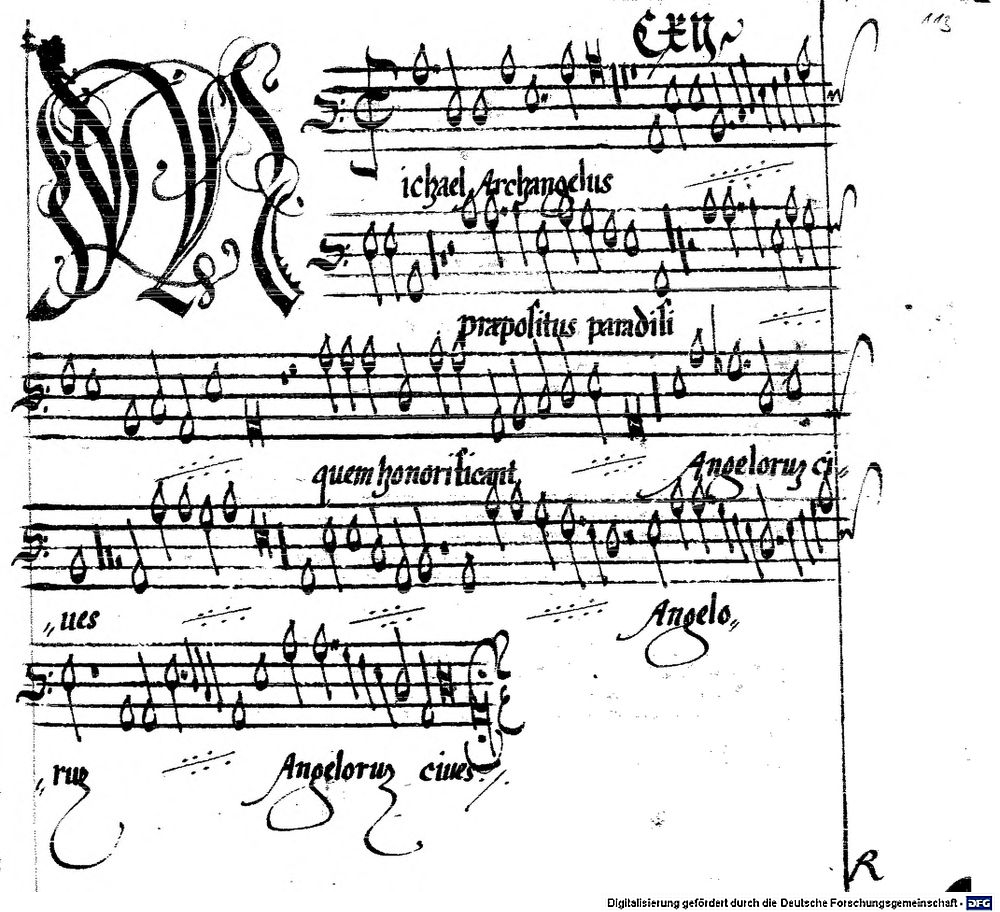 CXII
113
Michael Archangelus
præpositus paradisi
quem honorificant Angeloruz ci„
„ues Angelo„
„ruz Angeloruz ciues
R
Digitalisierung gefördert durch die Deutsche Forschungsgemeinschaft - DFG